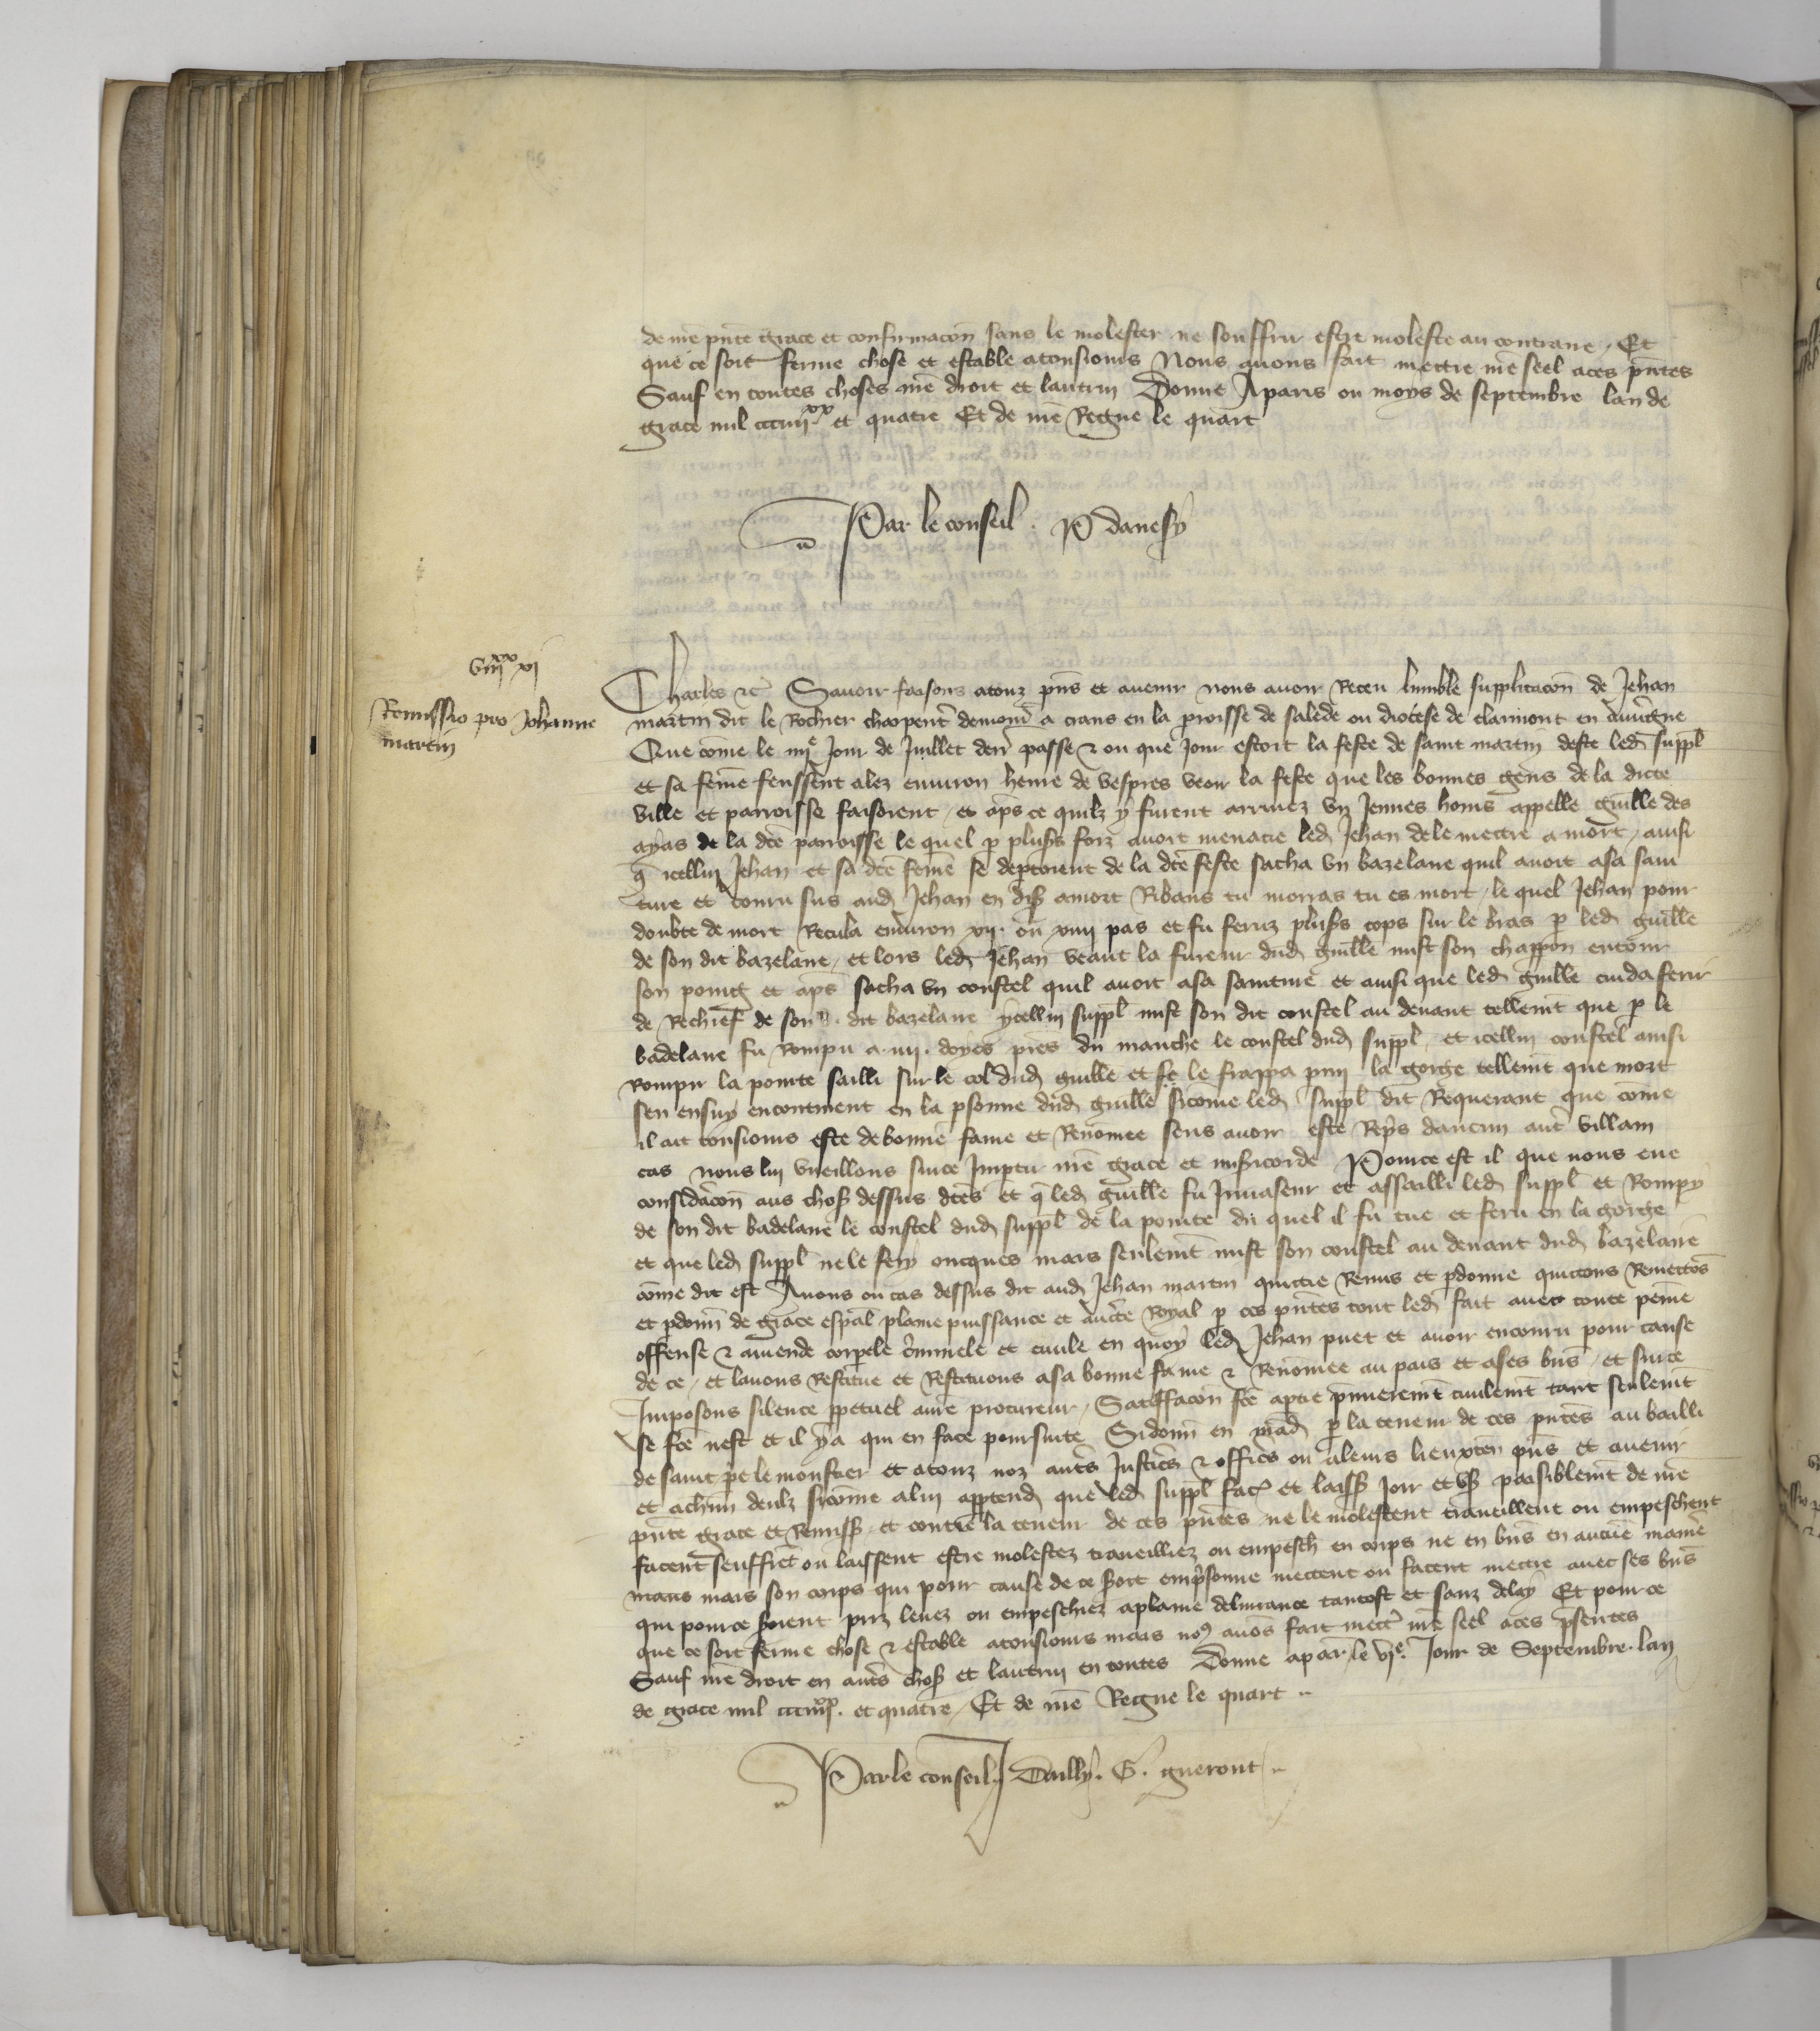 de nre pnte grace et confirmacon sans le molester ne souffrir estre moleste au contraire / Et
que ce soit ferme chose et estable atousiours Nous auons fait mettre nre seel aces pntes
Sauf en toutes choses nre droit et lautruy Donne Aparis ou moys de septembre lan de
grace mil ccc iiiixx et quatre Et de nre Regne le quart
Par le conseil . P danesy
viiixx xi
Remissio pro Johanne
martin
Charles etc Sauoir faisons atouz pns et auenir nous auoir Receu lumble supplicacon de Jehan
martin dit le Rochier charpent demour a crans en la proisse de salede ou diocese de clairmont en auugne
Que come le iiiie Jour de Juillet derr passe & ou que Jour estoit la feste de saint martin deste led suppl
et sa feme feussent alez enuiron heure de vespres veoir la feste que les bonnes gens de la dicte
ville et parroisse faisoient / et aps ce quilz y furent arriuez vn Jennes homs appelle guille des
ayas de la dce parroisse le quel p plus foiz auoit menacie led Jehan de le mettre a mort / ainsi
q icelluy Jehan et sa dce feme se deptoient de la dce feste sacha vn bazelaire quil auoit asa sain
ture et couru sus aud Jehan en dis amort Ribaus tu morras tu es mort / le quel Jehan pour
doubte de mort Recula enuiron xii. ou xiiii pas et fu feruz plus cops sur le bras p led guille
de son dit bazelaire / et lors led Jehan veant la fureur dud guille mist son chappon entour
son poing et aps sacha vn coustel quil auoit asa sainture et ainsi que led guille cuida ferir
de Rechief de son . dit bazelaire ycelluy suppl mist son dit coustel au deuant tellemt que p le
badelaire fu Rompu a .iiii. doyes pres du manche le coustel dud suppl / et icelluy coustel ainsi
Rompu la pointe sailli sur le col dud guille et se le frappa pmi la gorge tellemt que mort
sen ensuy encontinent en la psonne dud guille sicome led suppl dit Requerant que come
il ait tousiours este de bonne fame et Renomee sens auoir este Repris daucun aut villain
cas nous luy vueillons surce Impartir nre grace et misericorde Pource est il que nous eue
considacon aus chos dessus dces et q led guille fu Inuaseur et assailli led suppl et Rompy
de son dit badelaire le coustel dud suppl de la pointe du quel il fu tue et feru en la gorge
et que led suppl ne le fery oncques mais seulemt mist son coustel au deuant dud bazelaire
come dit est Auons ou cas dessus dit aud Jehan martin quittie Remis et pdonne quittons Remettos
et pdonn de grace espal plaine puissance et aucte Royal p ces pntes tout led fait auec toute peine
offense & amende corpele criminele et ciuile en quoy led Jehan puet et auoir encouru pour cause
de ce / et lauons Restitue et Restituons asa bonne fame & Renomee au pais et ases bns / et surce
Imposons silence ppetuel anre procureur / Satiffacon fce aptie prmieremt ciuilemt tant seulemt
se fce nest et il y a qui en face poursuite Si donn en mad p la teneur de ces pntes au bailli
de saint pe le moustier et atouz noz autrs Justicrs & offics ou aleurs lieuxten pns et auenir
et achun deulz sicome aluy apptend que led suppl fac et laiss Joir et vs paisiblemt de nre
pnte grace et Remiss / et contre la teneur de ces pntes ne le molestent traueillent ou empeschent
facent seuffret ou laissent estre molestez traueilliez ou empesch en corps ne en bns en aucune maniere
mais mais son corps qui pour cause de ce soit emprisonne mettent ou facent mettre auec ses bns
qui pource soient priz leuez ou empeschiez aplaine deliurance tantost et sanz delay Et pource
que ce soit ferme chose & estable atousiours mais nous auos fait mectre nre seel aces psentes
Sauf nre droit en autrs chos et lautruy en toutes Donne apar le vie. Jour de Septembre. lan
de grace mil ccc iiiixx. et quatre / Et de nre Regne le quart
Par le conseil. J Dailly. G. gueront